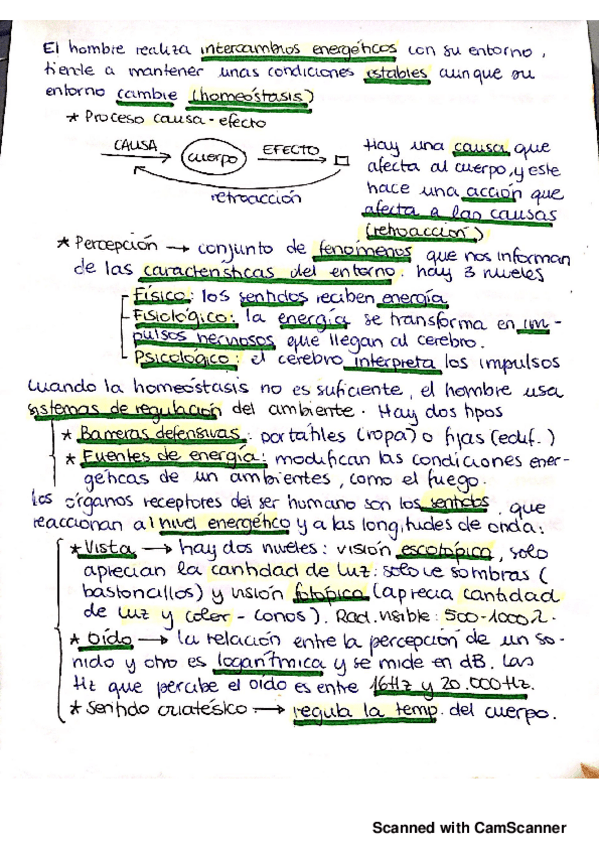 El hombre realiza intercambios energéticos con su entorno,
tiende a mantener unas condiciones estables aunque su
entorno cambie (homeóstasis)
* Proceso causa-efecto
CAUSA cuerpo EFECTO
retroacción
Hay una causa que
afecta al cuerpo, y este
hace una acción que
afecta a las causas
(retroacción)
* Percepción → conjunto de fenómenos que nos informan
de las características del entorno. hay 3 niveles
Físico: los sentidos reciben energía
Fisiológico: la energía se transforma en im-
pulsos nerviosos que llegan al cerebro.
Psicológico: el cerebro interpreta los impulsos
Cuando la homeóstasis no es suficiente, el hombre usa
sistemas de regulación del ambiente. Hay dos tipos
* Barreras defensivas: portátiles (ropa) o fijas (edif.)
* Fuentes de energía: modifican las condiciones ener-
géticas de un ambientes, como el fuego.
Los órganos receptores del ser humano son los sentidos, que
reaccionan al nivel energético y a las longitudes de onda:
* Vista → hay dos niveles: visión escotópica, solo
aprecian la cantidad de luz: solo ve sombras (
bastoncillos) y visión fotópica (aprecia cantidad
de luz y color - conos). Rad. visible: 500-1000
* Oído → la relación entre la percepción de un so-
nido y otro es logarítmica y se mide en dB. Las
Hz que percibe el oído es entre 16Hz y 20.000Hz.
* Sentido → regula la temp. del cuerpo.
Scanned with CamScanner